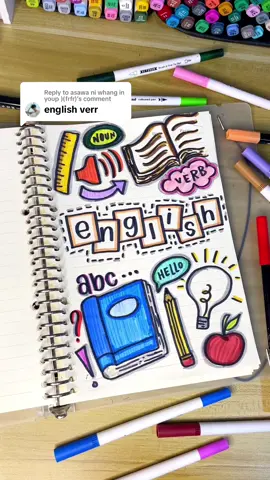 Reply to asawa ni whang in
youp :((frfr)'s comment
english verr
NOUN
VERB
english
abc...
HELLO
?
!